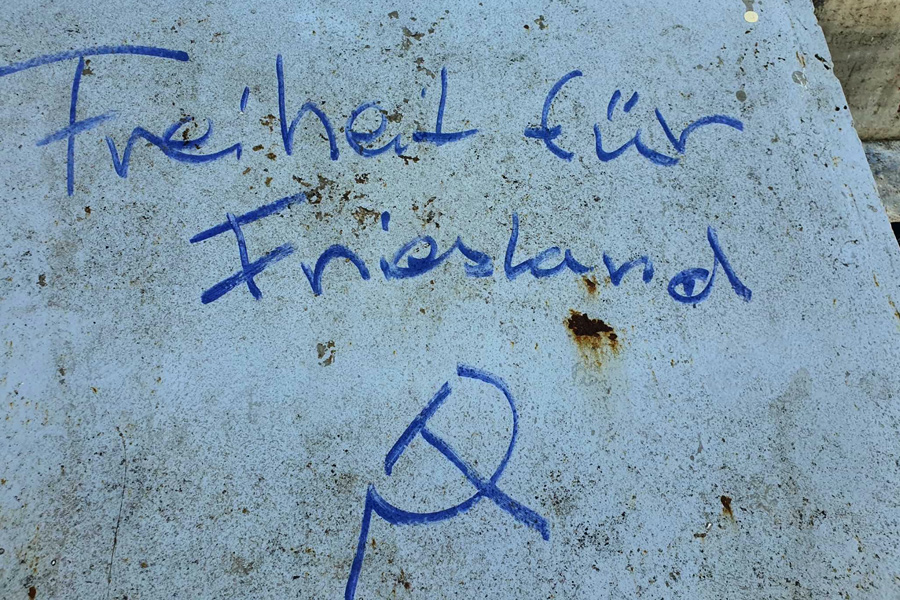 Freiheit für
Friesland